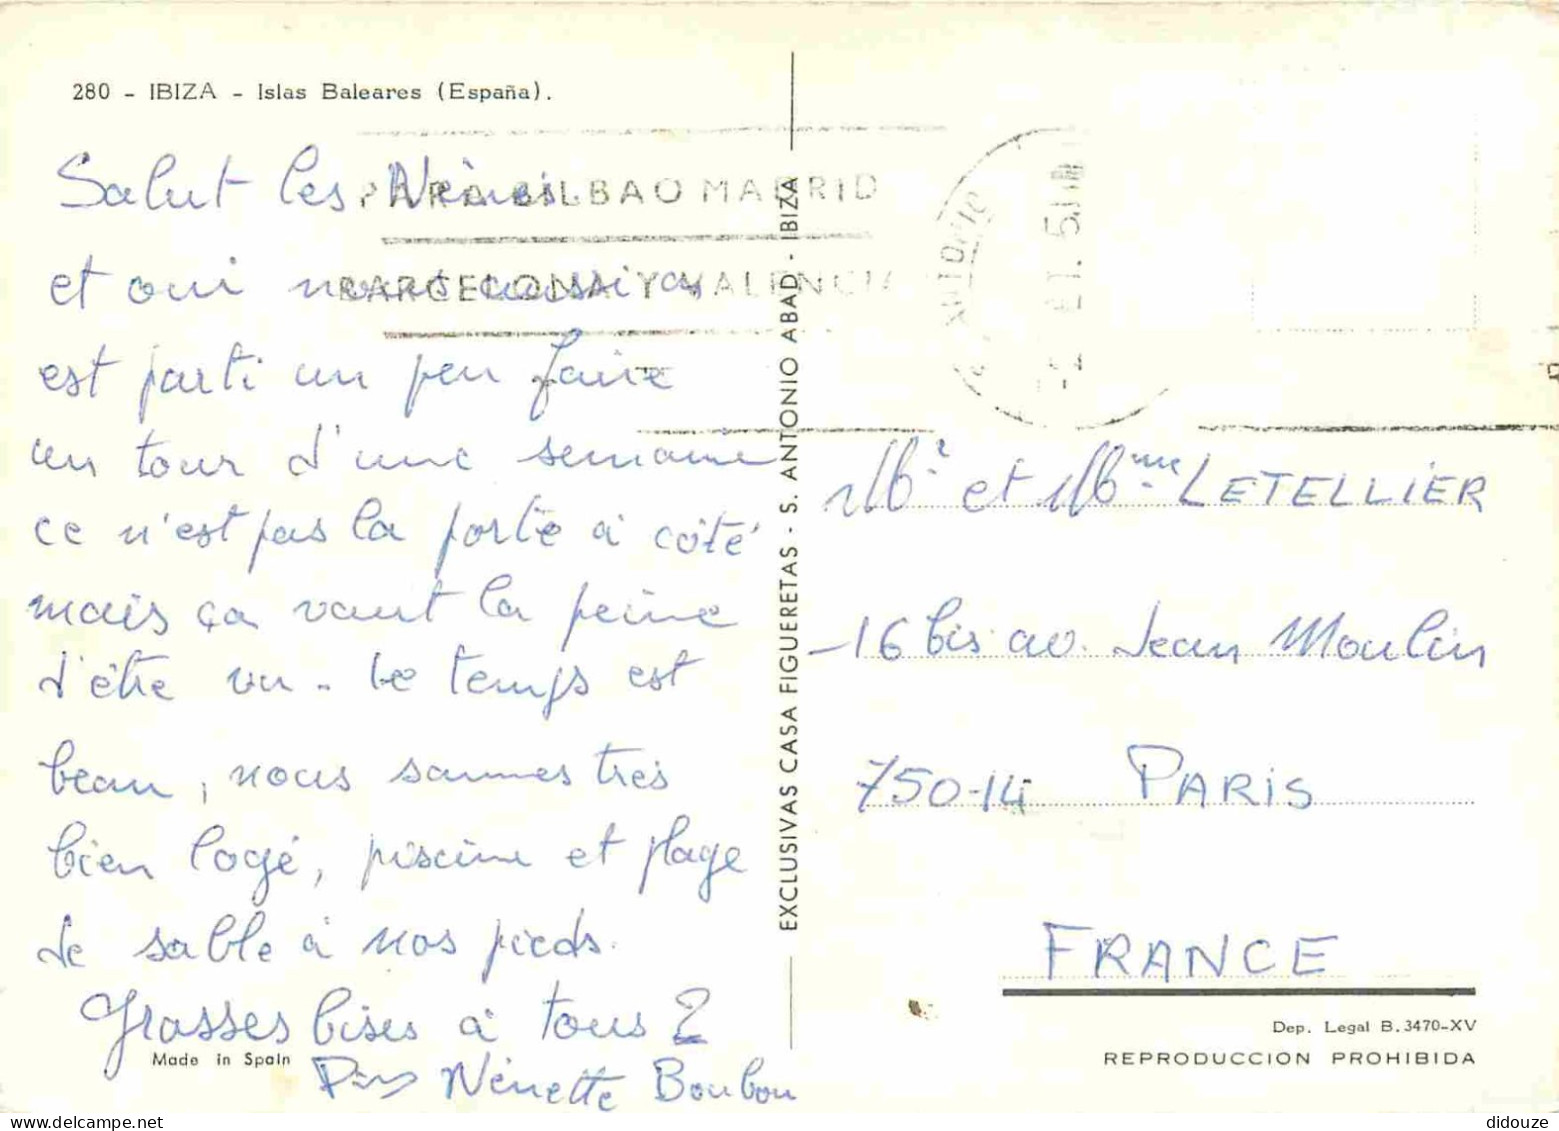 280 - IBIZA - Islas Baleares (España).
Salut les Nénés
et oui nous aussi on
est parti un peu faire
un tour d'une semaine
ce n'est pas la porte à côté
mais ça vaut la peine
d'être vu - Le temps est
beau, nous sommes très
bien logé, piscine et plage
de sable à nos pieds.
Grosses bises à tous 2
Made in Spain
Nénette Boubou
PARA BILBAO MADRID
BARCELONA Y VALENCIA
EXCLUSIVAS CASA FIGUERETAS - S. ANTONIO ABAD - IBIZA
Mr et Mme LETELLIER
-16 bis av. Jean Moulin
750-14 PARIS
FRANCE
Dep. Legal B. 3470-XV
REPRODUCCION PROHIBIDA
didouze